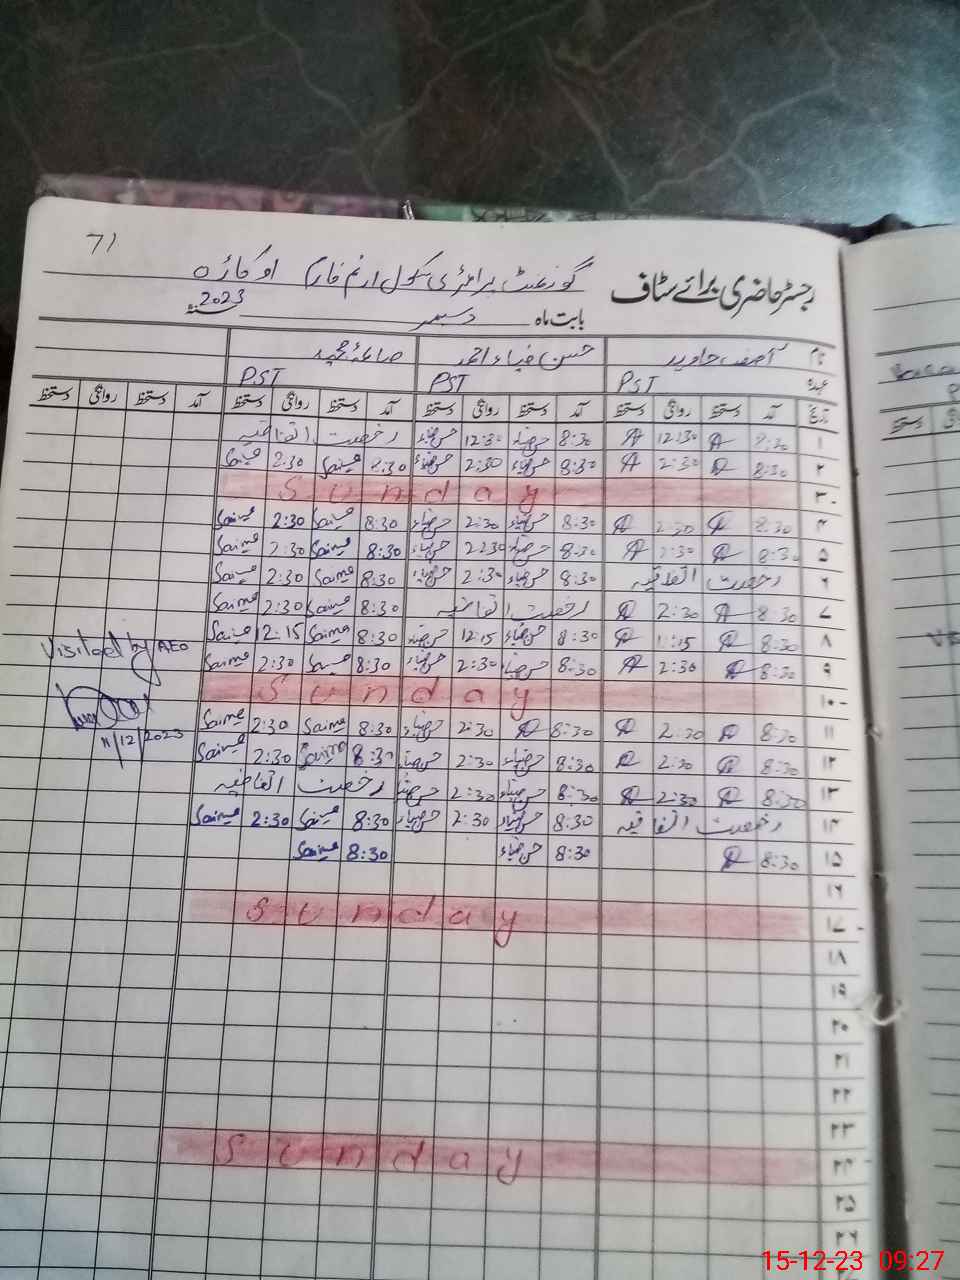 71
رجسٹر حاضری برائے سٹاف گورنمنٹ پرائمری سکول ارنم فارم اوکاڑہ
بابت ماہ دسمبر سنہ 2023
نام آصف جاوید حسن ضیاء احمد صائمہ مجید
عہدہ PST PST PST
تاریخ آمد دستخط روانگی دستخط آمد دستخط روانگی دستخط آمد دستخط روانگی دستخط آمد دستخط روانگی دستخط
۱ 8:30 A 12:30 A 8:30 حسن ضیاء 12:30 حسن ضیاء رخصت اتفاقیہ
۲ 8:30 A 2:30 A 8:30 حسن ضیاء 2:30 حسن ضیاء 8:30 Saima 2:30 Saima
۳ Sunday
۴ 8:30 A 2:30 A 8:30 حسن ضیاء 2:30 حسن ضیاء 8:30 Saima 2:30 Saima
۵ 8:30 A 2:30 A 8:30 حسن ضیاء 2:30 حسن ضیاء 8:30 Saima 2:30 Saima
۶ رخصت اتفاقیہ 8:30 حسن ضیاء 2:30 حسن ضیاء 8:30 Saima 2:30 Saima
۷ 8:30 A 2:30 A رخصت اتفاقیہ 8:30 Saima 2:30 Saima
۸ 8:30 A 1:15 A 8:30 حسن ضیاء 12:15 حسن ضیاء 8:30 Saima 12:15 Saima
Visited by AEO
۹ 8:30 A 2:30 A 8:30 حسن ضیاء 2:30 حسن ضیاء 8:30 Saima 2:30 Saima
۱۰ Sunday
۱۱ 8:30 A 2:30 A 8:30 A 2:30 حسن ضیاء 8:30 Saima 2:30 Saima
11/12/2023
۱۲ 8:30 A 2:30 A 8:30 حسن ضیاء 2:30 حسن ضیاء 8:30 Saima 2:30 Saima
۱۳ 8:30 A 2:30 A 8:30 حسن ضیاء 2:30 حسن ضیاء رخصت اتفاقیہ
۱۴ رخصت اتفاقیہ 8:30 حسن ضیاء 2:30 حسن ضیاء 8:30 Saima 2:30 Saima
۱۵ 8:30 A 8:30 حسن ضیاء 8:30 Saima
۱۶
۱۷ Sunday
۱۸
۱۹
۲۰
۲۱
۲۲
۲۳
۲۴ Sunday
۲۵
۲۶
15-12-23 09:27